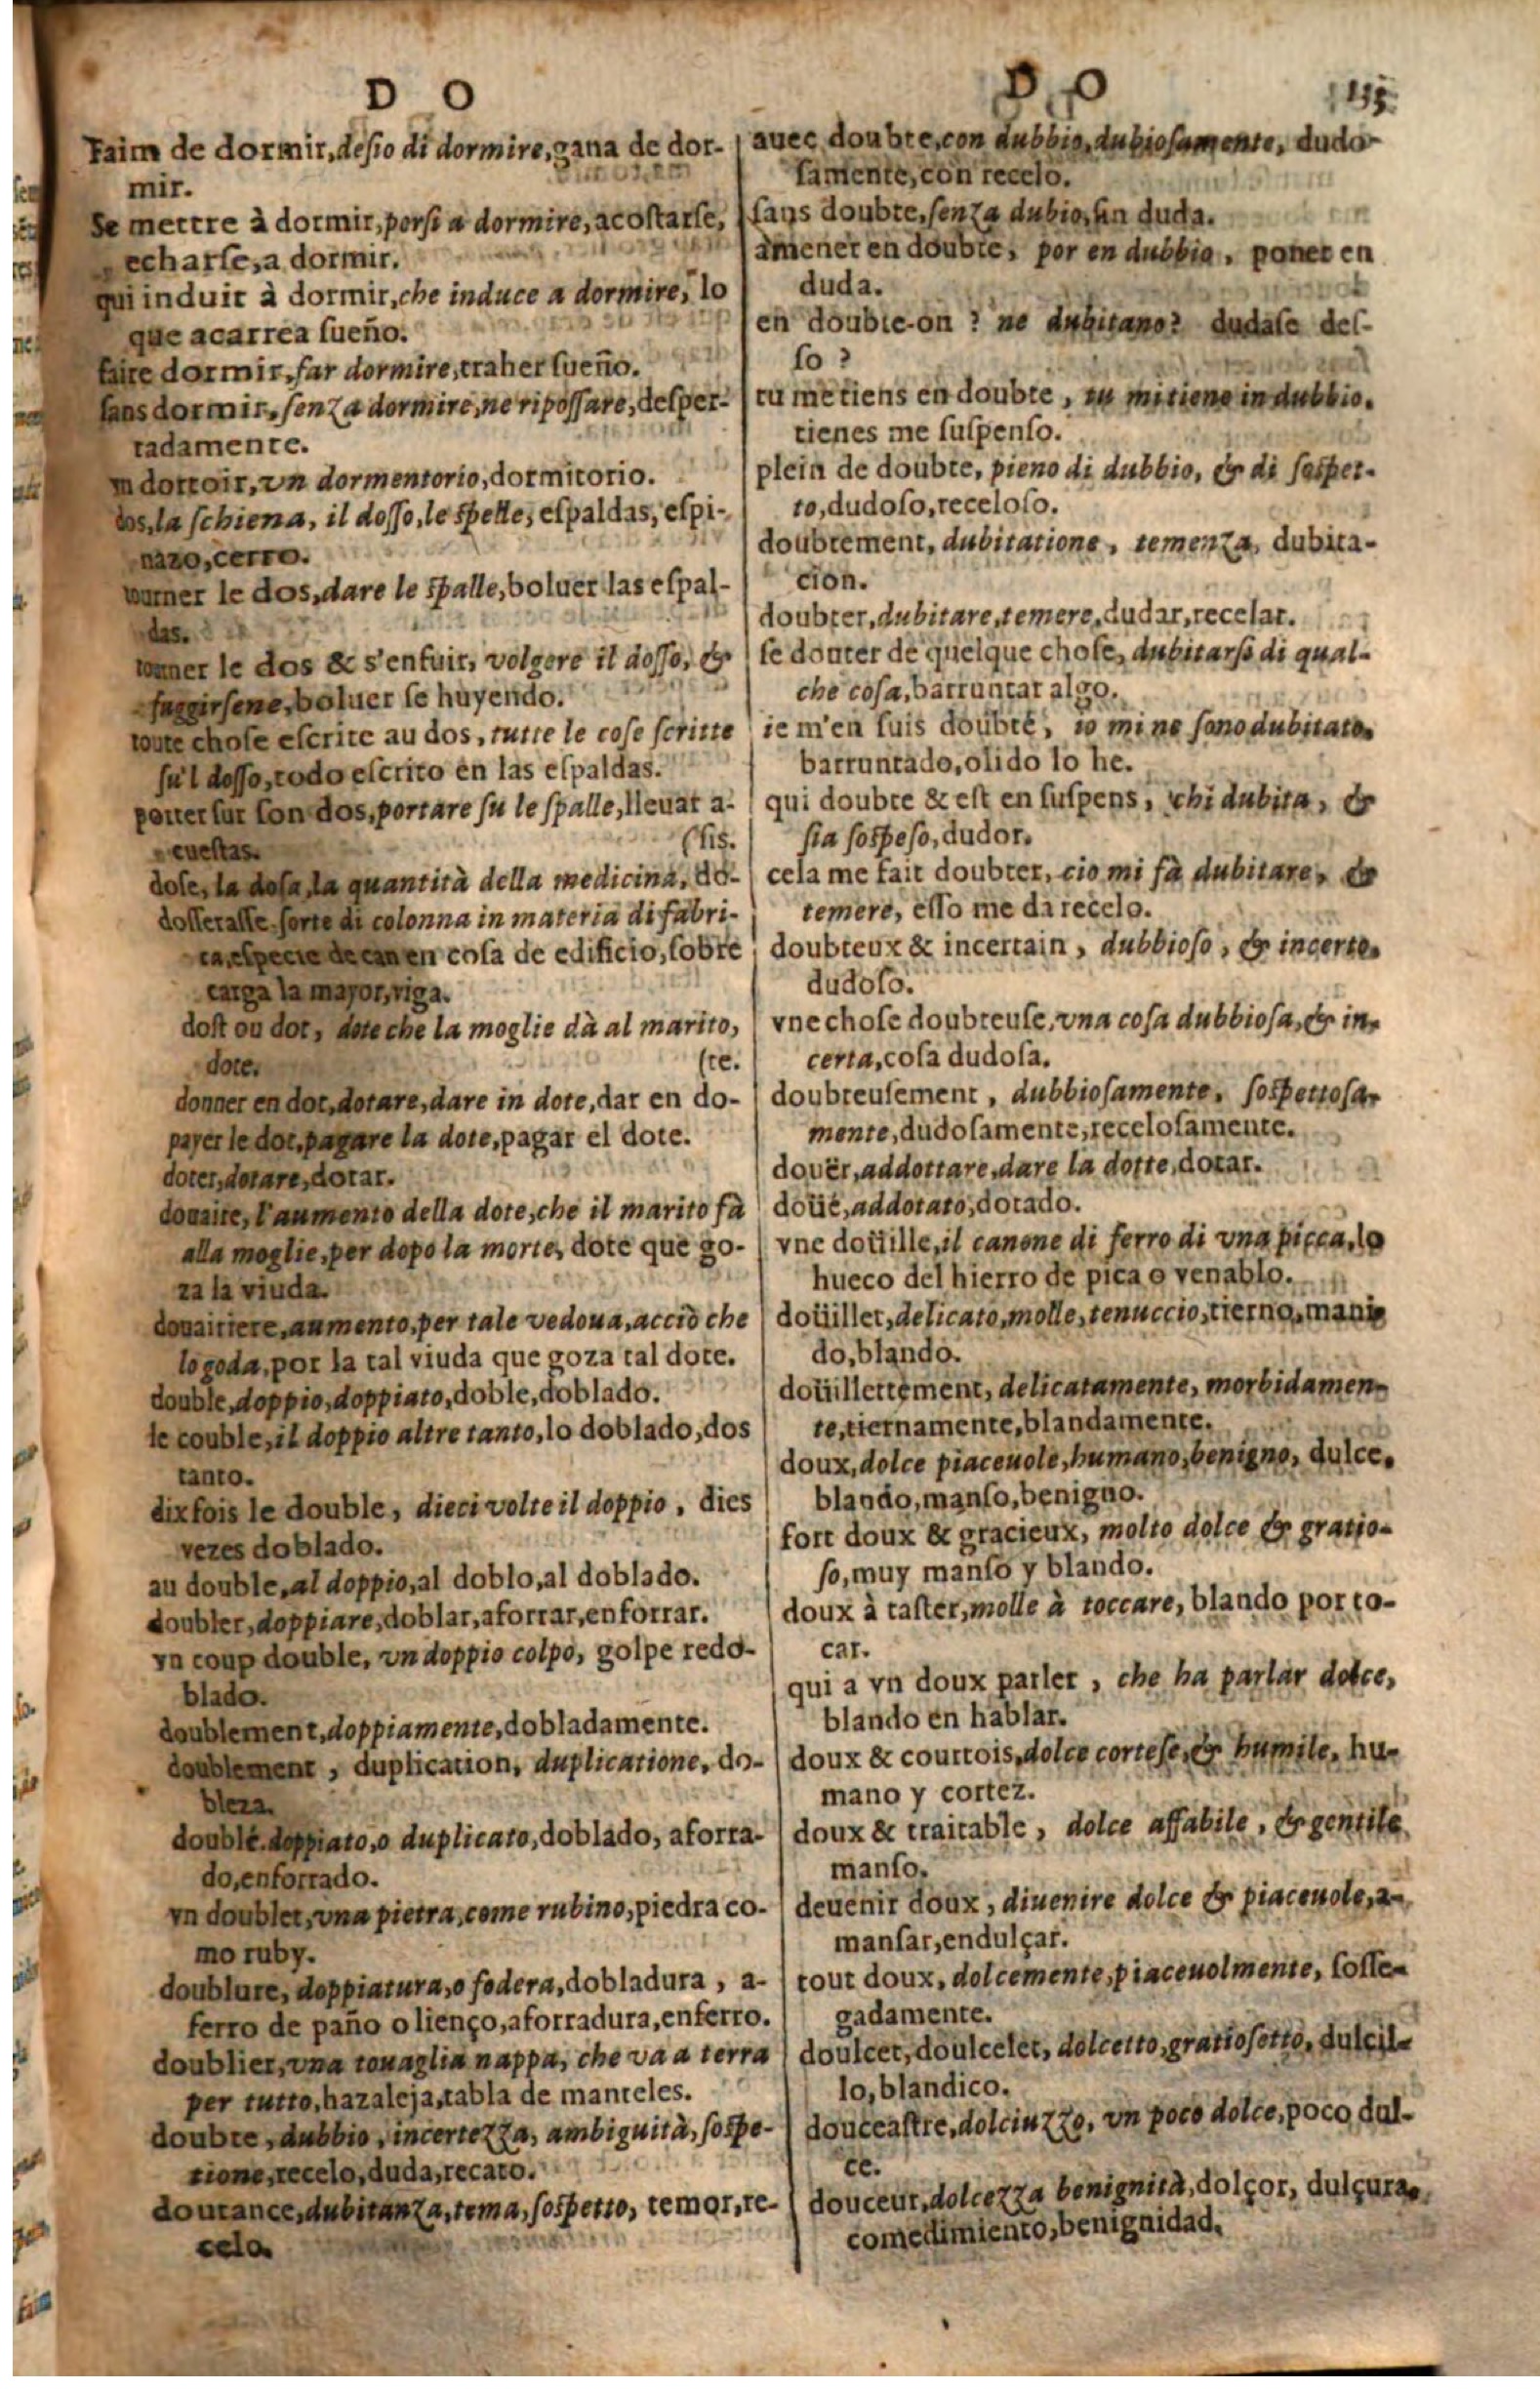 D O
Faim de dormir, desio di dormire, gana de dor-
mir.
Se mettre à dormir, porsi a dormire, acostarse,
echarse, a dormir.
qui induit à dormir, che induce a dormire, lo
que acarrea sueño.
faire dormir, far dormire, traher sueño.
sans dormir, senza dormire, ne ripossare, desper-
tadamente.
vn dortoir, vn dormentorio, dormitorio.
dos, la schiena, il dosso, le spelle, espaldas, espi-
nazo, cerro.
tourner le dos, dare le spalle, boluer las espal-
das.
tourner le dos & s'enfuir, volgere il dosso, &
fuggirsene, boluer se huyendo.
toute chose escrite au dos, tutte le cose scritte
su'l dosso, todo escrito en las espaldas.
porter sur son dos, portare su le spalle, lleuar a-
cuestas. (sis.
dose, la dosa, la quantità della medicina, do-
dosserasse. sorte di colonna in materia di fabri-
ca, especie de can en cosa de edificio, sobre
carga la mayor, viga.
dost ou dot, dote che la moglie dà al marito,
dote. (te.
donner en dot, dotare, dare in dote, dar en do-
payer le dot, pagare la dote, pagar el dote.
doter, dotare, dotar.
douaire, l'aumento della dote, che il marito fà
alla moglie, per dopo la morte, dote que go-
za la viuda.
douairiere, aumento, per tale vedoua, acciò che
lo goda, por la tal viuda que goza tal dote.
double, doppio, doppiato, doble, doblado.
le couble, il doppio altre tanto, lo doblado, dos
tanto.
dix fois le double, dieci volte il doppio, dies
vezes doblado.
au double, al doppio, al doblo, al doblado.
doubler, doppiare, doblar, aforrar, enforrar.
vn coup double, vn doppio colpo, golpe redo-
blado.
doublement, doppiamente, dobladamente.
doublement, duplication, duplicatione, do-
bleza.
doublé. doppiato, o duplicato, doblado, aforra-
do, enforrado.
vn doublet, vna pietra, come rubino, piedra co-
mo ruby.
doublure, doppiatura, o fodera, dobladura, a-
ferro de paño o lienço, aforradura, enferro.
doublier, vna touaglia nappa, che va a terra
per tutto, hazaleja, tabla de manteles.
doubte, dubbio, incertezza, ambiguità, sospe-
tione, recelo, duda, recato.
doutance, dubitanza, tema, sospetto, temor, re-
celo.
D O 115
auec doubte, con dubbio, dubiosamente, dudo-
samente, con recelo.
sans doubte, senza dubio, sin duda.
amener en doubte, por en dubbio, poner en
duda.
en doubte-on? ne dubitano? dudase des-
so?
tu me tiens en doubte, tu mi tiene in dubbio.
tienes me suspenso.
plein de doubte, pieno di dubbio, & di sospet-
to, dudoso, receloso.
doubtement, dubitatione, temenza, dubita-
cion.
doubter, dubitare, temere, dudar, recelar.
se douter de quelque chose, dubitarsi di qual-
che cosa, barruntar algo.
ie m'en suis doubté, io mi ne sono dubitato.
barruntado, olido lo he.
qui doubte & est en suspens, chi dubita, &
sia sospeso, dudor.
cela me fait doubter, cio mi fà dubitare, &
temere, esso me da recelo.
doubteux & incertain, dubbioso, & incerto.
dudoso.
vne chose doubteuse, vna cosa dubbiosa, & in-
certa, cosa dudosa.
doubteusement, dubbiosamente, sospettosa-
mente, dudosamente, recelosamente.
douër, addottare, dare la dotte, dotar.
doüé, addotato, dotado.
vne doüille, il canone di ferro di vna picca, lo
hueco del hierro de pica o venablo.
doüillet, delicato, molle, tenuccio, tierno, mani-
do, blando.
doüillettement, delicatamente, morbidamen-
te, tiernamente, blandamente.
doux, dolce piaceuole, humano, benigno, dulce,
blando, manso, benigno.
fort doux & gracieux, molto dolce & gratio-
so, muy manso y blando.
doux à taster, molle à toccare, blando por to-
car.
qui a vn doux parler, che ha parlar dolce,
blando en hablar.
doux & courtois, dolce cortese, & humile, hu-
mano y cortez.
doux & traitable, dolce affabile, & gentile
manso.
deuenir doux, diuenire dolce & piaceuole, a-
mansar, endulçar.
tout doux, dolcemente, piaceuolmente, sosse-
gadamente.
doulcet, doulcelet, dolcetto, gratiosetto, dulcil-
lo, blandico.
douceastre, dolciuzzo, vn poco dolce, poco dul-
ce.
douceur, dolcezza benignità, dolçor, dulçura,
comedimiento, benignidad.